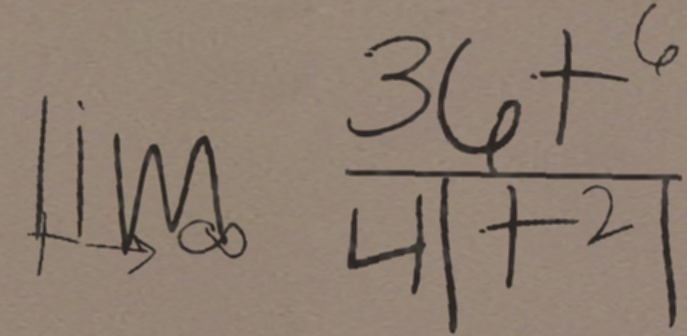 lim t→∞ 36t^6 / 4|t^2|